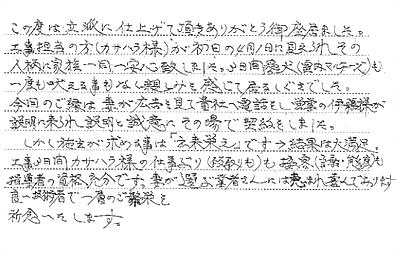 この度は立派に仕上げて頂きありがとう御座居ました。
工事担当の方(カサハラ様)が初日の4月1日に見えられその
人柄に家族一同一安心致しました。4日間愛犬(室内マルチーズ)も
一度も吠える事もなく親しみを感じて居るしぐさでした。
今回のご縁は妻が広告を見て貴社へ電話をし営業の伊藤様が
説明に来られ説明と誠意にその場で契約をしました。
しかし施主が求める事は「出来栄え」です→結果は大満足、
工事4日間カサハラ様の仕事ぶり(段取りも)も接客(言動・態度)も
指導者の資格充分です。妻が選ぶ業者さんには恵まれ喜んでおります
良い技術者で一層のご繁栄を
祈念いたします。